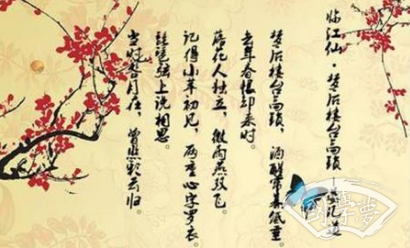 临江仙·梦后楼台高锁 晏几道
梦后楼台高锁，酒醒帘幕低垂
去年春恨却来时。
落花人独立，微雨燕双飞。
记得小苹初见，两重心字罗衣。
琵琶弦上说相思。
当时明月在，曾照彩云归。